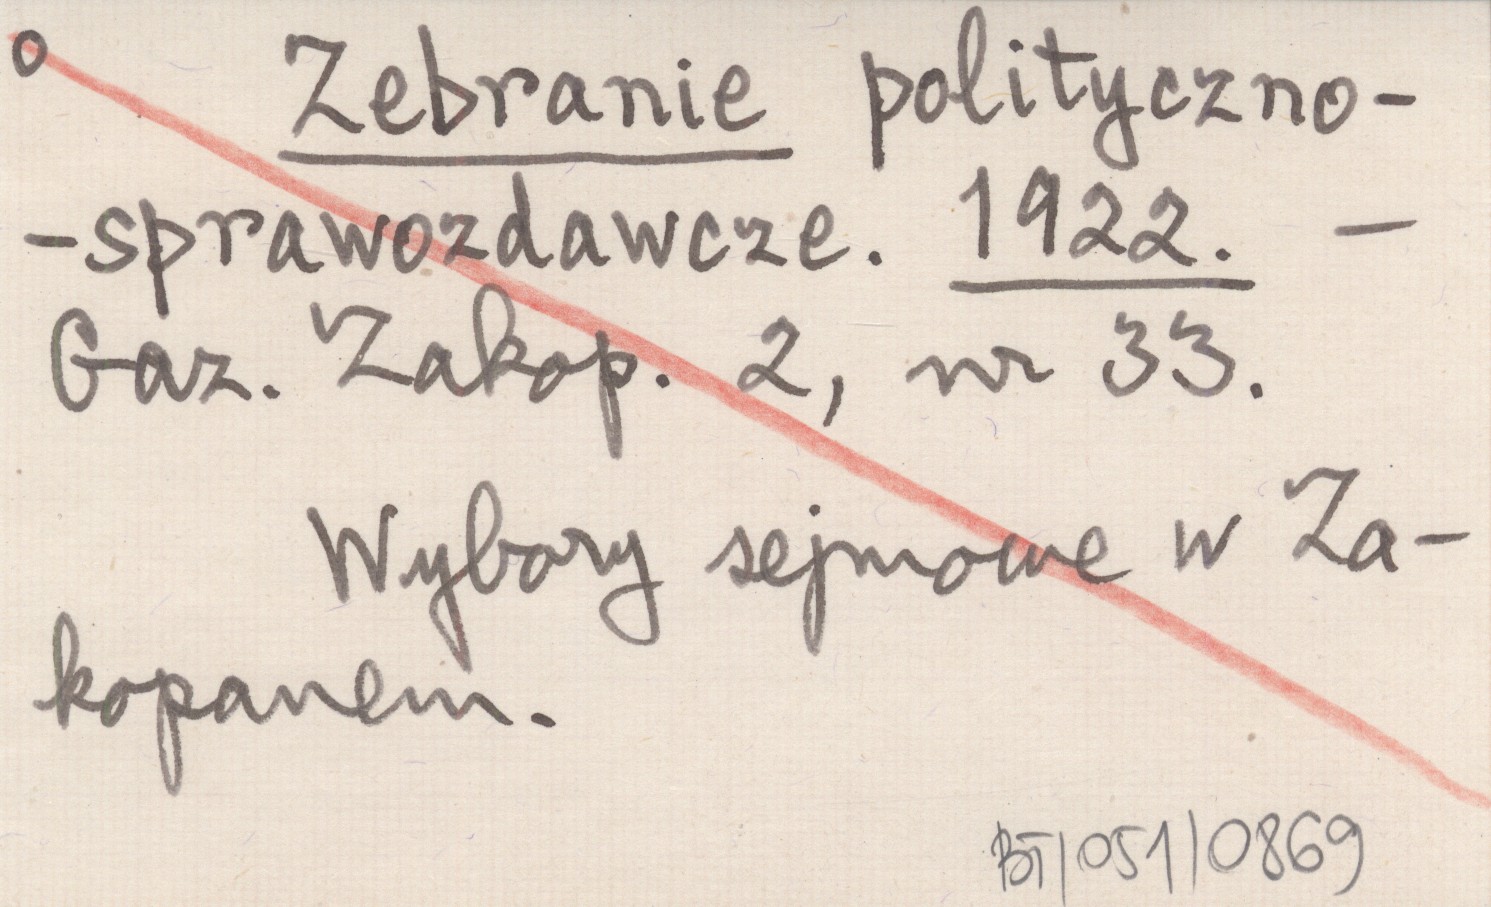 o Zebranie polityczno-
-sprawozdawcze. 1922. —
Gaz. Zakop. 2, nr 33.
Wybory sejmowe w Za-
kopanem.
BT/051/0869